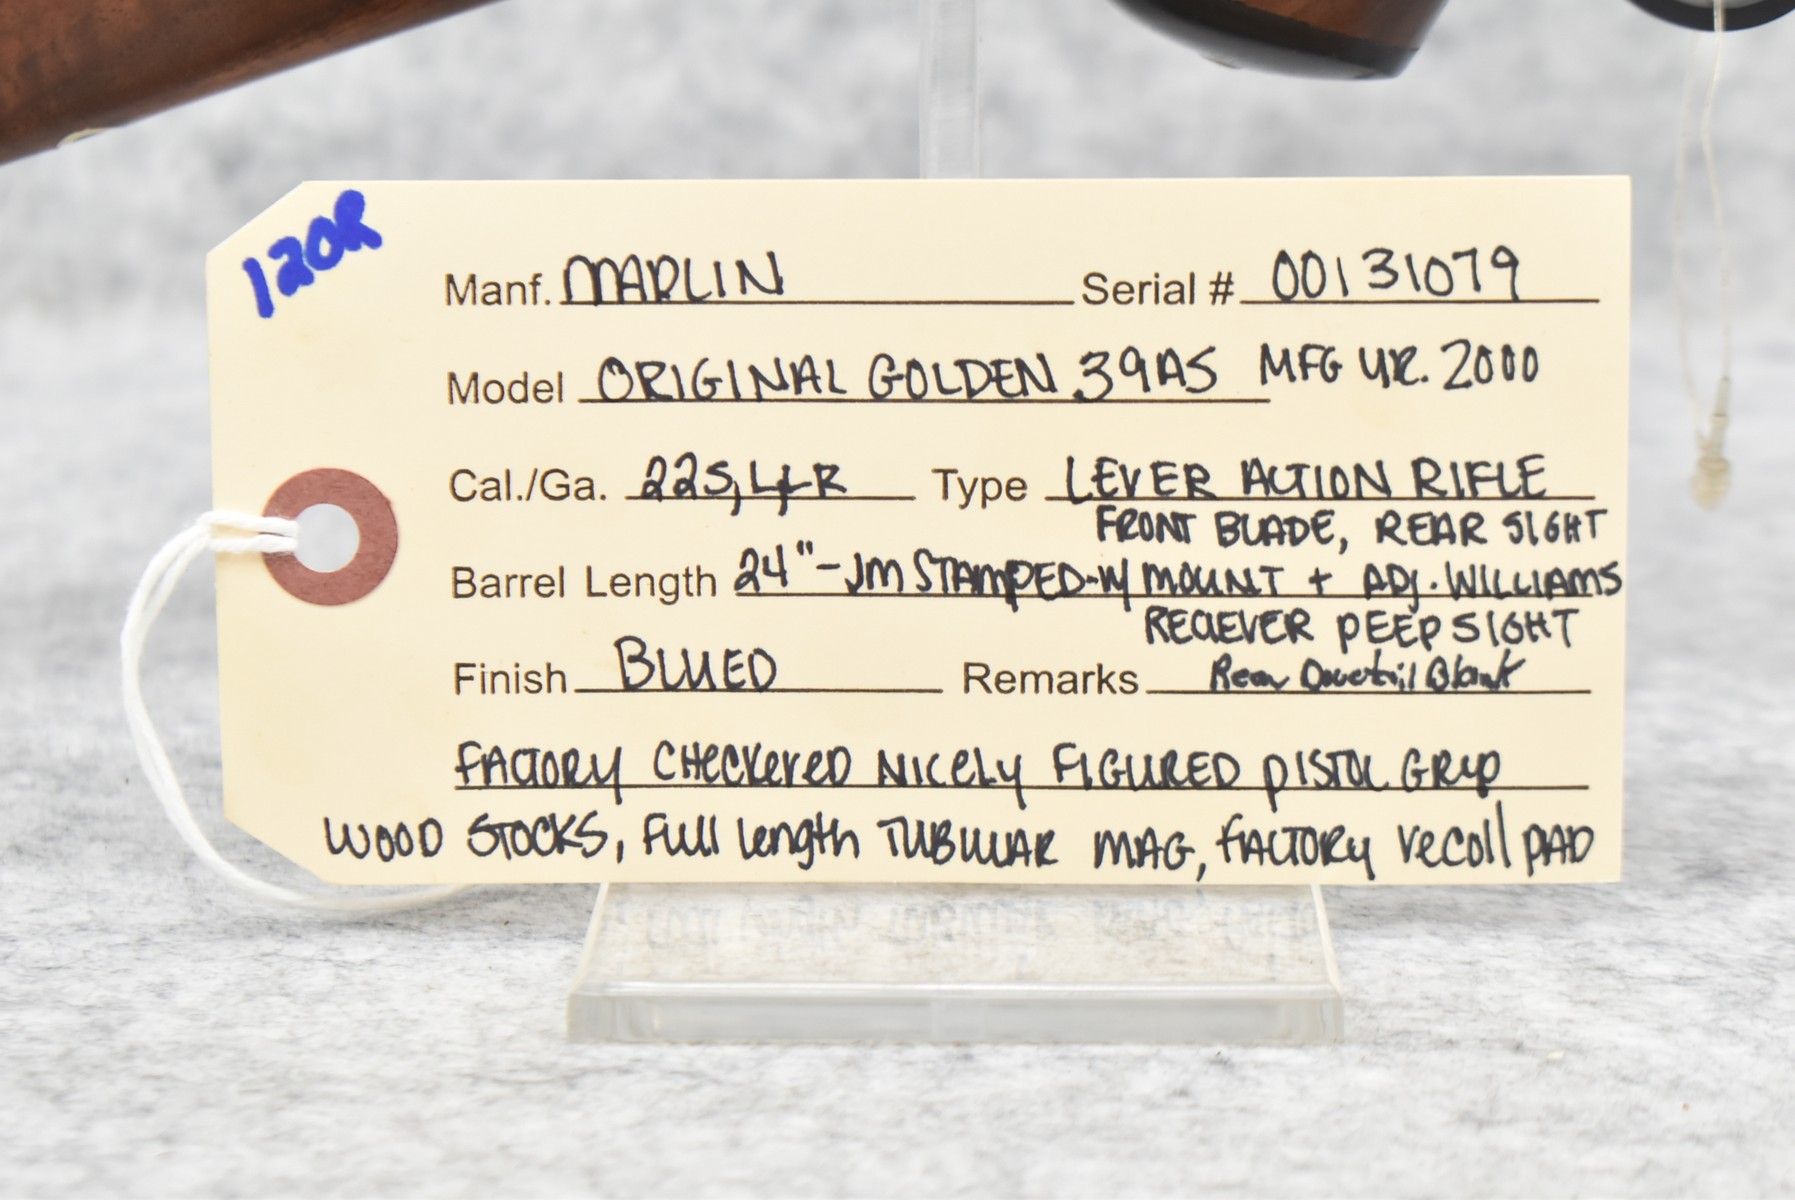 120R
Manf. MARLIN Serial # 00131079
Model ORIGINAL GOLDEN 39AS MFG YR. 2000
Cal./Ga. 22S, L+R Type LEVER ACTION RIFLE
FRONT BLADE, REAR SIGHT
Barrel Length 24"-JM STAMPED-W/ MOUNT + ADJ. WILLIAMS
RECIEVER PEEP SIGHT
Finish BLUED Remarks Rear Dovetail Blank
FACTORY CHECKERED NICELY FIGURED PISTOL GRIP
WOOD STOCKS, FULL length TUBULAR MAG, FACTORY recoil PAD